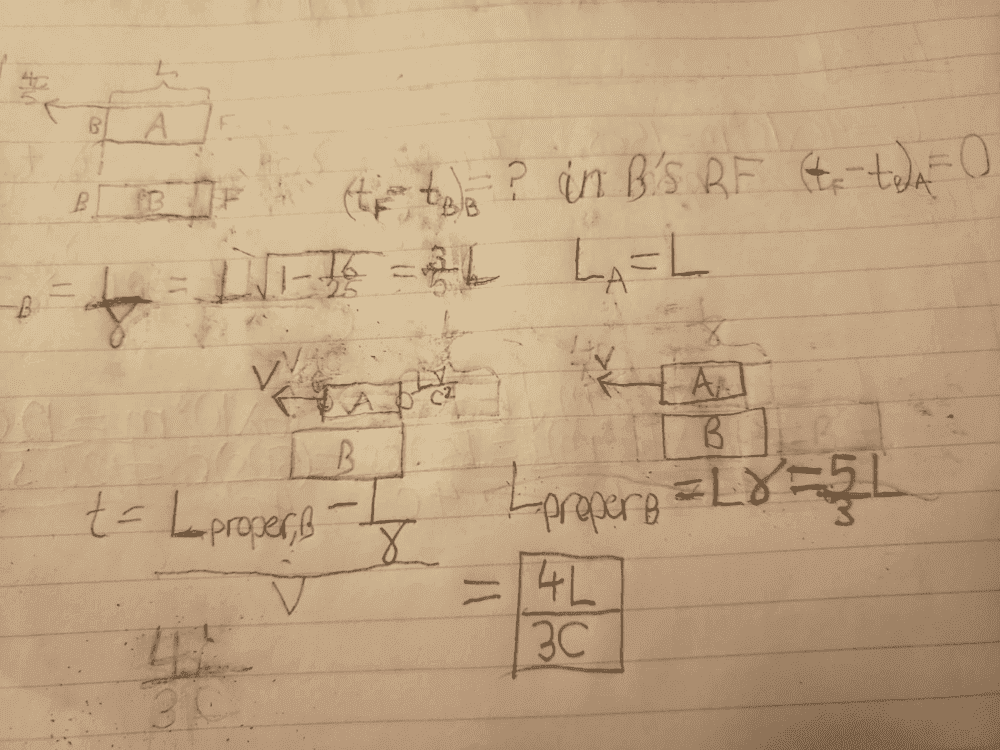 L
4C/5
B A F
B B F
(t_F - t_B)_B = ? in B's RF (t_F - t_B)_A = 0
_B = L/γ = L√(1 - 16/25) = 3/5 L L_A = L
V V A 0 LV/C² V A
B B
t = (L_proper,B - L/γ)/V L_proper B = Lγ = 5/3 L
= 4L/3C
4L/3C